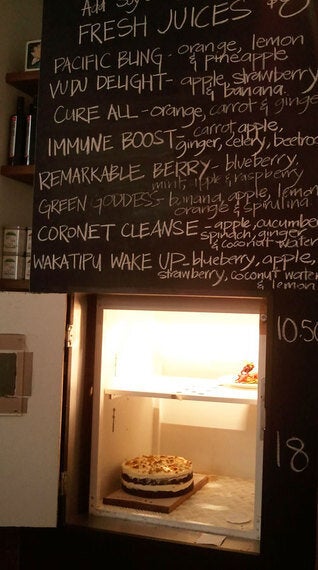 Add Soy
FRESH JUICES $8
PACIFIC BLING - orange, lemon
& pineapple
VUDU DELIGHT - apple, strawberry
& banana
CURE ALL - orange, carrot & ginge
IMMUNE BOOST - carrot, apple,
ginger, celery, beetroo
REMARKABLE BERRY - blueberry,
mint, apple & raspberry
GREEN GODDESS - banana, apple, lemon
orange & spirulina
CORONET CLEANSE - apple, cucumber
spinach, ginger
& coconut water
WAKATIPU WAKE UP - blueberry, apple,
strawberry, coconut water
& lemon
10.50
18